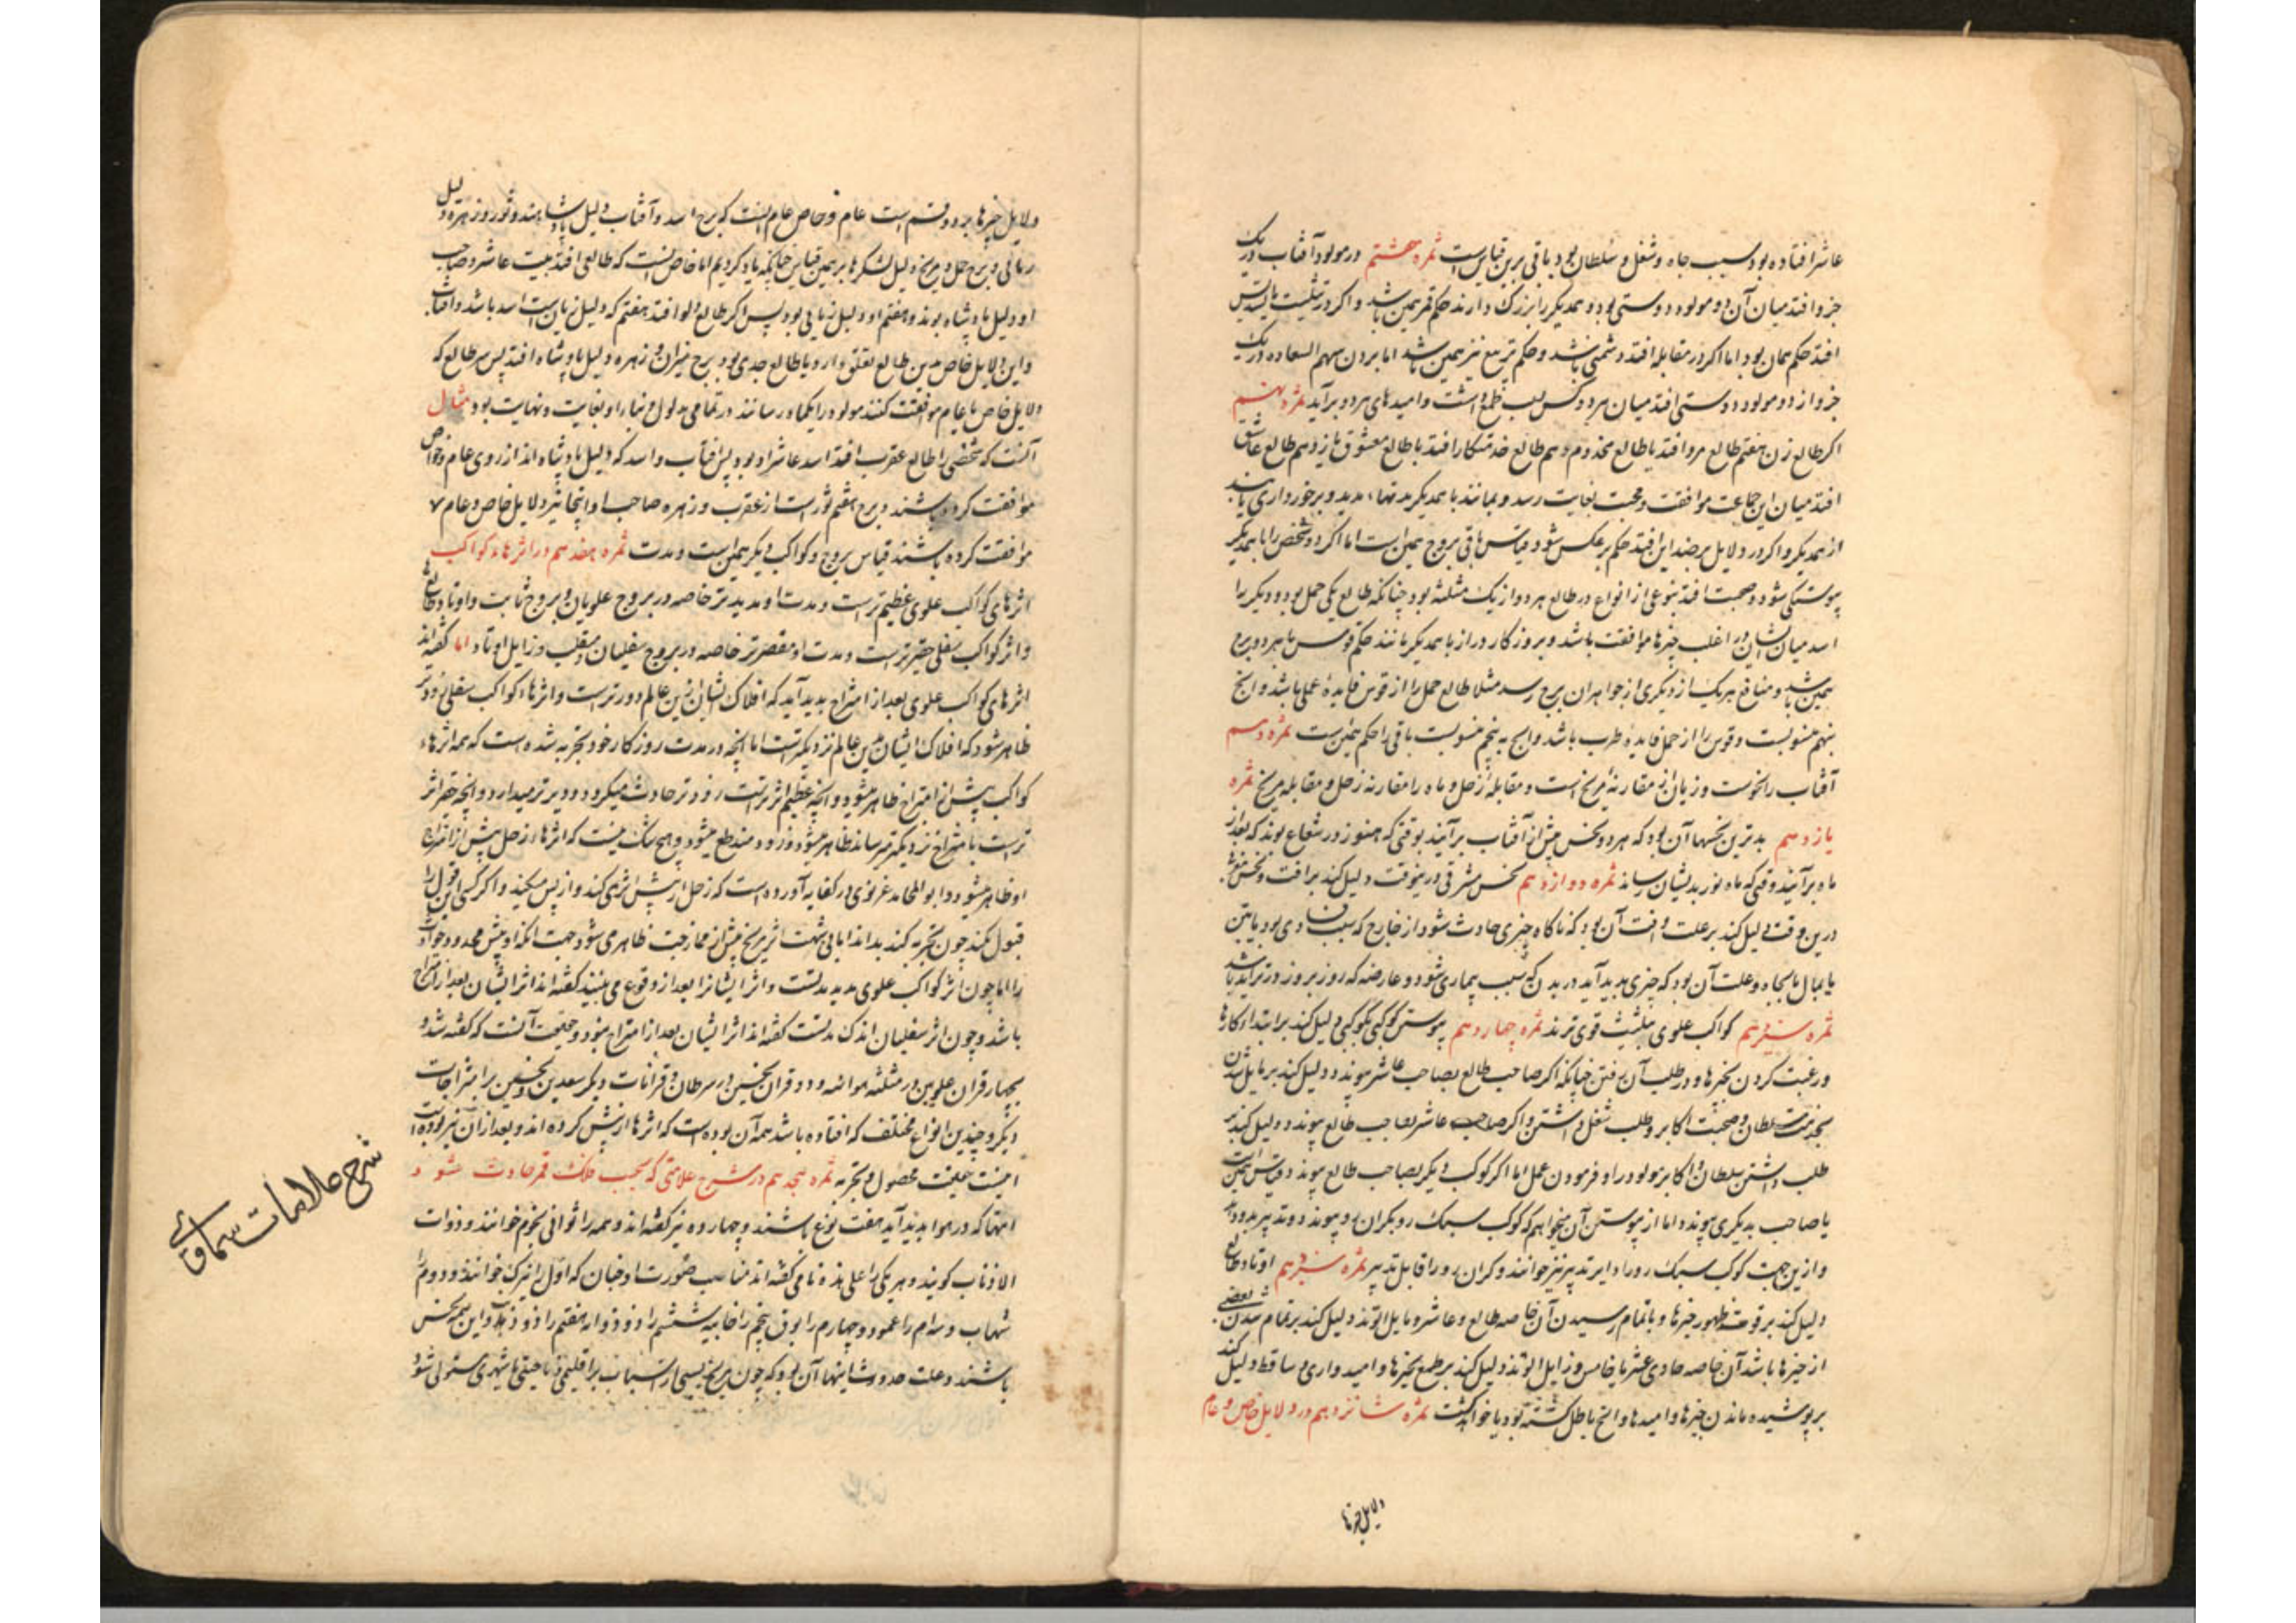 عاشر افتاده بود سبب جاه و شغل و سلطان بود و باقی برین قیاس است ثمره هشتم در مولود آفتاب در یک
جزو افتد میان آن دو مولود دوستی بود و همدیگر را بزرگ دارند حکم قمر همین باشد و اگر در تثلیث یا تسدیس
افتد حکم همان بود اما اگر در مقابله افتد دشمنی باشد و حکم تربیع نیز همین باشد اما بردن سهم السعاده در یک
جزو از دو مولود دوستی افتد میان هر دو کس سبب طمع داشت و امیدهای هر دو برآید ثمره نهم
اگر طالع زن هفتم طالع مرد افتد یا طالع مخدوم دهم طالع خدمتکار افتد یا طالع معشوق یازدهم طالع عاشق
افتد میان این جماعت موافقت و محبت بغایت رسد و بمانند با همدیگر مدتها مدید و برخورداری یابند
از همدیگر و اگر در دلایل بر ضد این افتد حکم بر عکس شود و قیاس باقی بروج همین است اما اگر دو شخص را با همدیگر
پیوستگی شود و صحبت افتد بنوعی از انواع در طالع هر دو از یک مثلثه بود چنانکه طالع یکی حمل بود و دیگر را
اسد میان ایشان در اغلب چیزها موافقت باشد و بروزگار دراز با همدیگر بمانند حکم قوس با هر دو برج
همین باشد و منافع هر یک از دیگری از جواهر آن برج رسد مثلا طالع حمل را از قوس فایدهٔ عملی باشد و آنچ
بنهم منسوبست و قوس را از حمل فایدهٔ طرب باشد و آنچ به پنجم منسوبست باقی را حکم همین است ثمره دهم
آفتاب را نحوست و زیان از مقارنهٔ مریخ است و مقابلهٔ زحل و ماه را مقارنه زحل و مقابله مریخ ثمره
یازدهم بدترین نحسها آن بود که هر دو نحس پیش از آفتاب برآیند بوقتی که هنوز در شعاع بوند که بعد از
ماه برآیند وقتی که ماه نور بدیشان رساند ثمره دوازدهم نحس مشرقی درین وقت دلیل کند بر آفت و نحس مغربی
درین وقت دلیل کند بر علت و آفت آن بود که ناگاه چیزی حادث شود از خارج که سبب فسادی بود یا بتن
یا بمال یا بجاه و علت آن بود که چیزی پدید آید در بدن که سبب بیماری شود و عارضه که روز بروز در تزاید باشد
ثمره سیزدهم کواکب علوی بتثلیث قوی ترند ثمره چهاردهم پیوستن کوکبی بکوکبی دلیل کند بر ابتداء کارها
و رغبت کردن بچیزها و در طلب آن رفتن چنانکه اگر صاحب طالع بصاحب عاشر پیوندد دلیل کند بر مایل شدن
بخدمت سلطان و صحبت اکابر و طلب شغل داشتن و اگر صاحب عاشر بصاحب طالع پیوندد دلیل کند بر
طلب داشتن سلطان و اکابر مولود را و فرمودن عمل اما اگر کوکب دیگر بصاحب طالع پیوندد قیاس همین است
یا صاحب بدیگری پیوندد اما از پیوستن آن میخواهم که کوکب سبک رو بگران رو پیوندد و تدبیر بدو دهد
و ازین جهت کوکب سبک رو را دایر تدبیر نیز خوانند و گران رو را قابل تدبیر ثمره سیزدهم اوتاد طالع
دلیل کند بر قوت ظهور چیزها و باتمام رسیدن آن خاصه طالع و عاشر و مایل الوتد دلیل کند بر تمام شدن بعضی
از چیزها باشد آن خاصه حادی عشر یا خامس و زایل الوتد دلیل کند بر طمع بچیزها و امیدواری و ساقط دلیل کند
بر پوشیده ماندن چیزها و امیدها و آنچ باطل گشته بود یا خواهد گشت ثمره شانزدهم در دلایل خاص و عام
دلایل چیزها
دلایل چیزها بر دو قسم است عام و خاص عام آنست که برج اسد و آفتاب دلیل پادشاه بوند و ثور و زهره دلیل
زنان و برج حمل و مریخ دلیل لشکرها بر همین قیاس چنانکه یاد کردیم اما خاص آنست که طالعی افتد بیت عاشر و صاحب
او دلیل پادشاه بوند و هفتم او دلیل زنان بود پس اگر طالع دلو افتد هفتم که دلیل زنان است اسد باشد و آفتاب
و این دلایل خاص بدین طالع تعلق دارد یا طالع جدی بود برج میزان و زهره دلیل پادشاه افتد پس هر طالع که
دلایل خاص با عام موافقت کنند مولود را یکباره رسانند در تمامی مدلول دنیا را و بغایت و نهایت بود مثال
آنست که شخصی را طالع عقرب افتد اسد عاشر او بود پس آفتاب و اسد که دلیل پادشاه اند از روی عام و خاص
موافقت کرده باشند و برج هفتم ثور است از عقرب و زهره صاحب او اینجا نیز دلایل خاص و عام
موافقت کرده باشند قیاس بروج و کواکب دیگر همین است و مدت ثمره هفدهم در اثرهاء کواکب
اثرهای کواکب علوی عظیم تر است و مدت او مدید تر خاصه در بروج علویان و بروج ثابت و اوتاد طالع
و اثر کواکب سفلی حقیرتر است و مدت او مقصرتر خاصه در بروج سفلیان و منقلب و زایل اوتاد اما گفته اند
اثرهای کواکب علوی بعد از امتزاج پدید آید که افلاک ایشان ازین عالم دورتر است و اثرهاء کواکب سفلی زودتر
ظاهر شود که افلاک ایشان بدین عالم نزدیکتر است اما آنچه در مدت روزگار خود تجربه شده است که همه اثرهاء
کواکب پیش از امتزاج ظاهر میشود و آنچه عظیم اثرتر است زودتر حادث میگردد و دیرتر میدارد و آنچه حقیر اثر
تر است با امتزاج نزدیکتر میرساند ظاهر میشود و زود منقطع میشود و هیچ شک نیست که اثرهاء زحل پیش از امتزاج
او ظاهر میشود و ابو المحامد غزنوی در کفایه آورده است که زحل از پیش اثر می کند و از پس میکند و اگر کسی این قول را
قبول نکند چون تجربه کند بداند اما بی شبهت اثر مریخ پیش از ممازجت ظاهر می شود جهت آنکه او پیش
را اما چون اثر کواکب علوی مدید مدتست و اثر ایشانرا بعد از وقوع می بینند گفته اند اثر ایشان بعد از امتزاج
باشد و چون اثر سفلیان اندک مدتست گفته اند اثر ایشان بعد از امتزاج نبود و حقیقت آنست که گفته شد و
بچهار قران علویین در مثلثه هوائیه و دو قران نحسین در سرطان و قرانات دیگر سعدین و نحسین بر امتزاجات
دیگر و چندین انواع مختلف که افتاده باشد همه آن بوده است که اثرها از پیش کرده اند و بعد از آن نیز بوده است
اینست حقیقت محصول و تجربه ثمره هجدهم در شرح علامتی که بحسب فلک قمر حادث شود
اینها که در هوا پدید آید هفت نوع باشند و چهارده نیز گفته اند و همه را ثوانی نجوم خوانند و ذوات
الاذناب گویند و هر یکی را علی حده نامی گفته اند مناسب صورت او چنان که اول را نیزک خوانند و دوم را
شهاب و سوم را عمود و چهارم را بوق پنجم را خابیه ششم را ذو ذؤابه هفتم را ذو ذنابه و این همه نحس
باشند و علت حدوث اینها آن بود که چون مریخ بسببی از اسباب بر اقلیمی یا ناحیتی یا شهری مستولی شود
شرح علامات سماوی